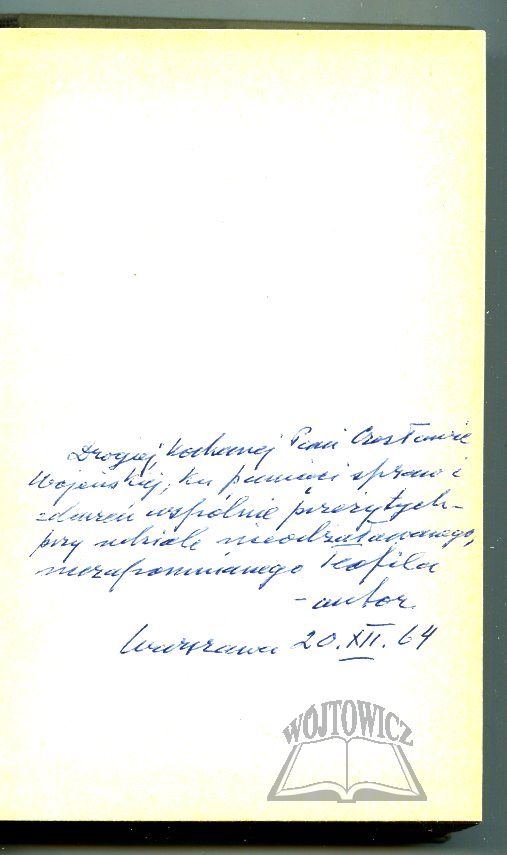 Drogiej, kochanej Pani Czesławie
Wojeńskiej, ku pamięci spraw i
zdarzeń wspólnie przeżytych -
przy udziale nieodżałowanego,
niezapomnianego Teofila
- autor
Warszawa 20.XII.64
WÓJTOWICZ